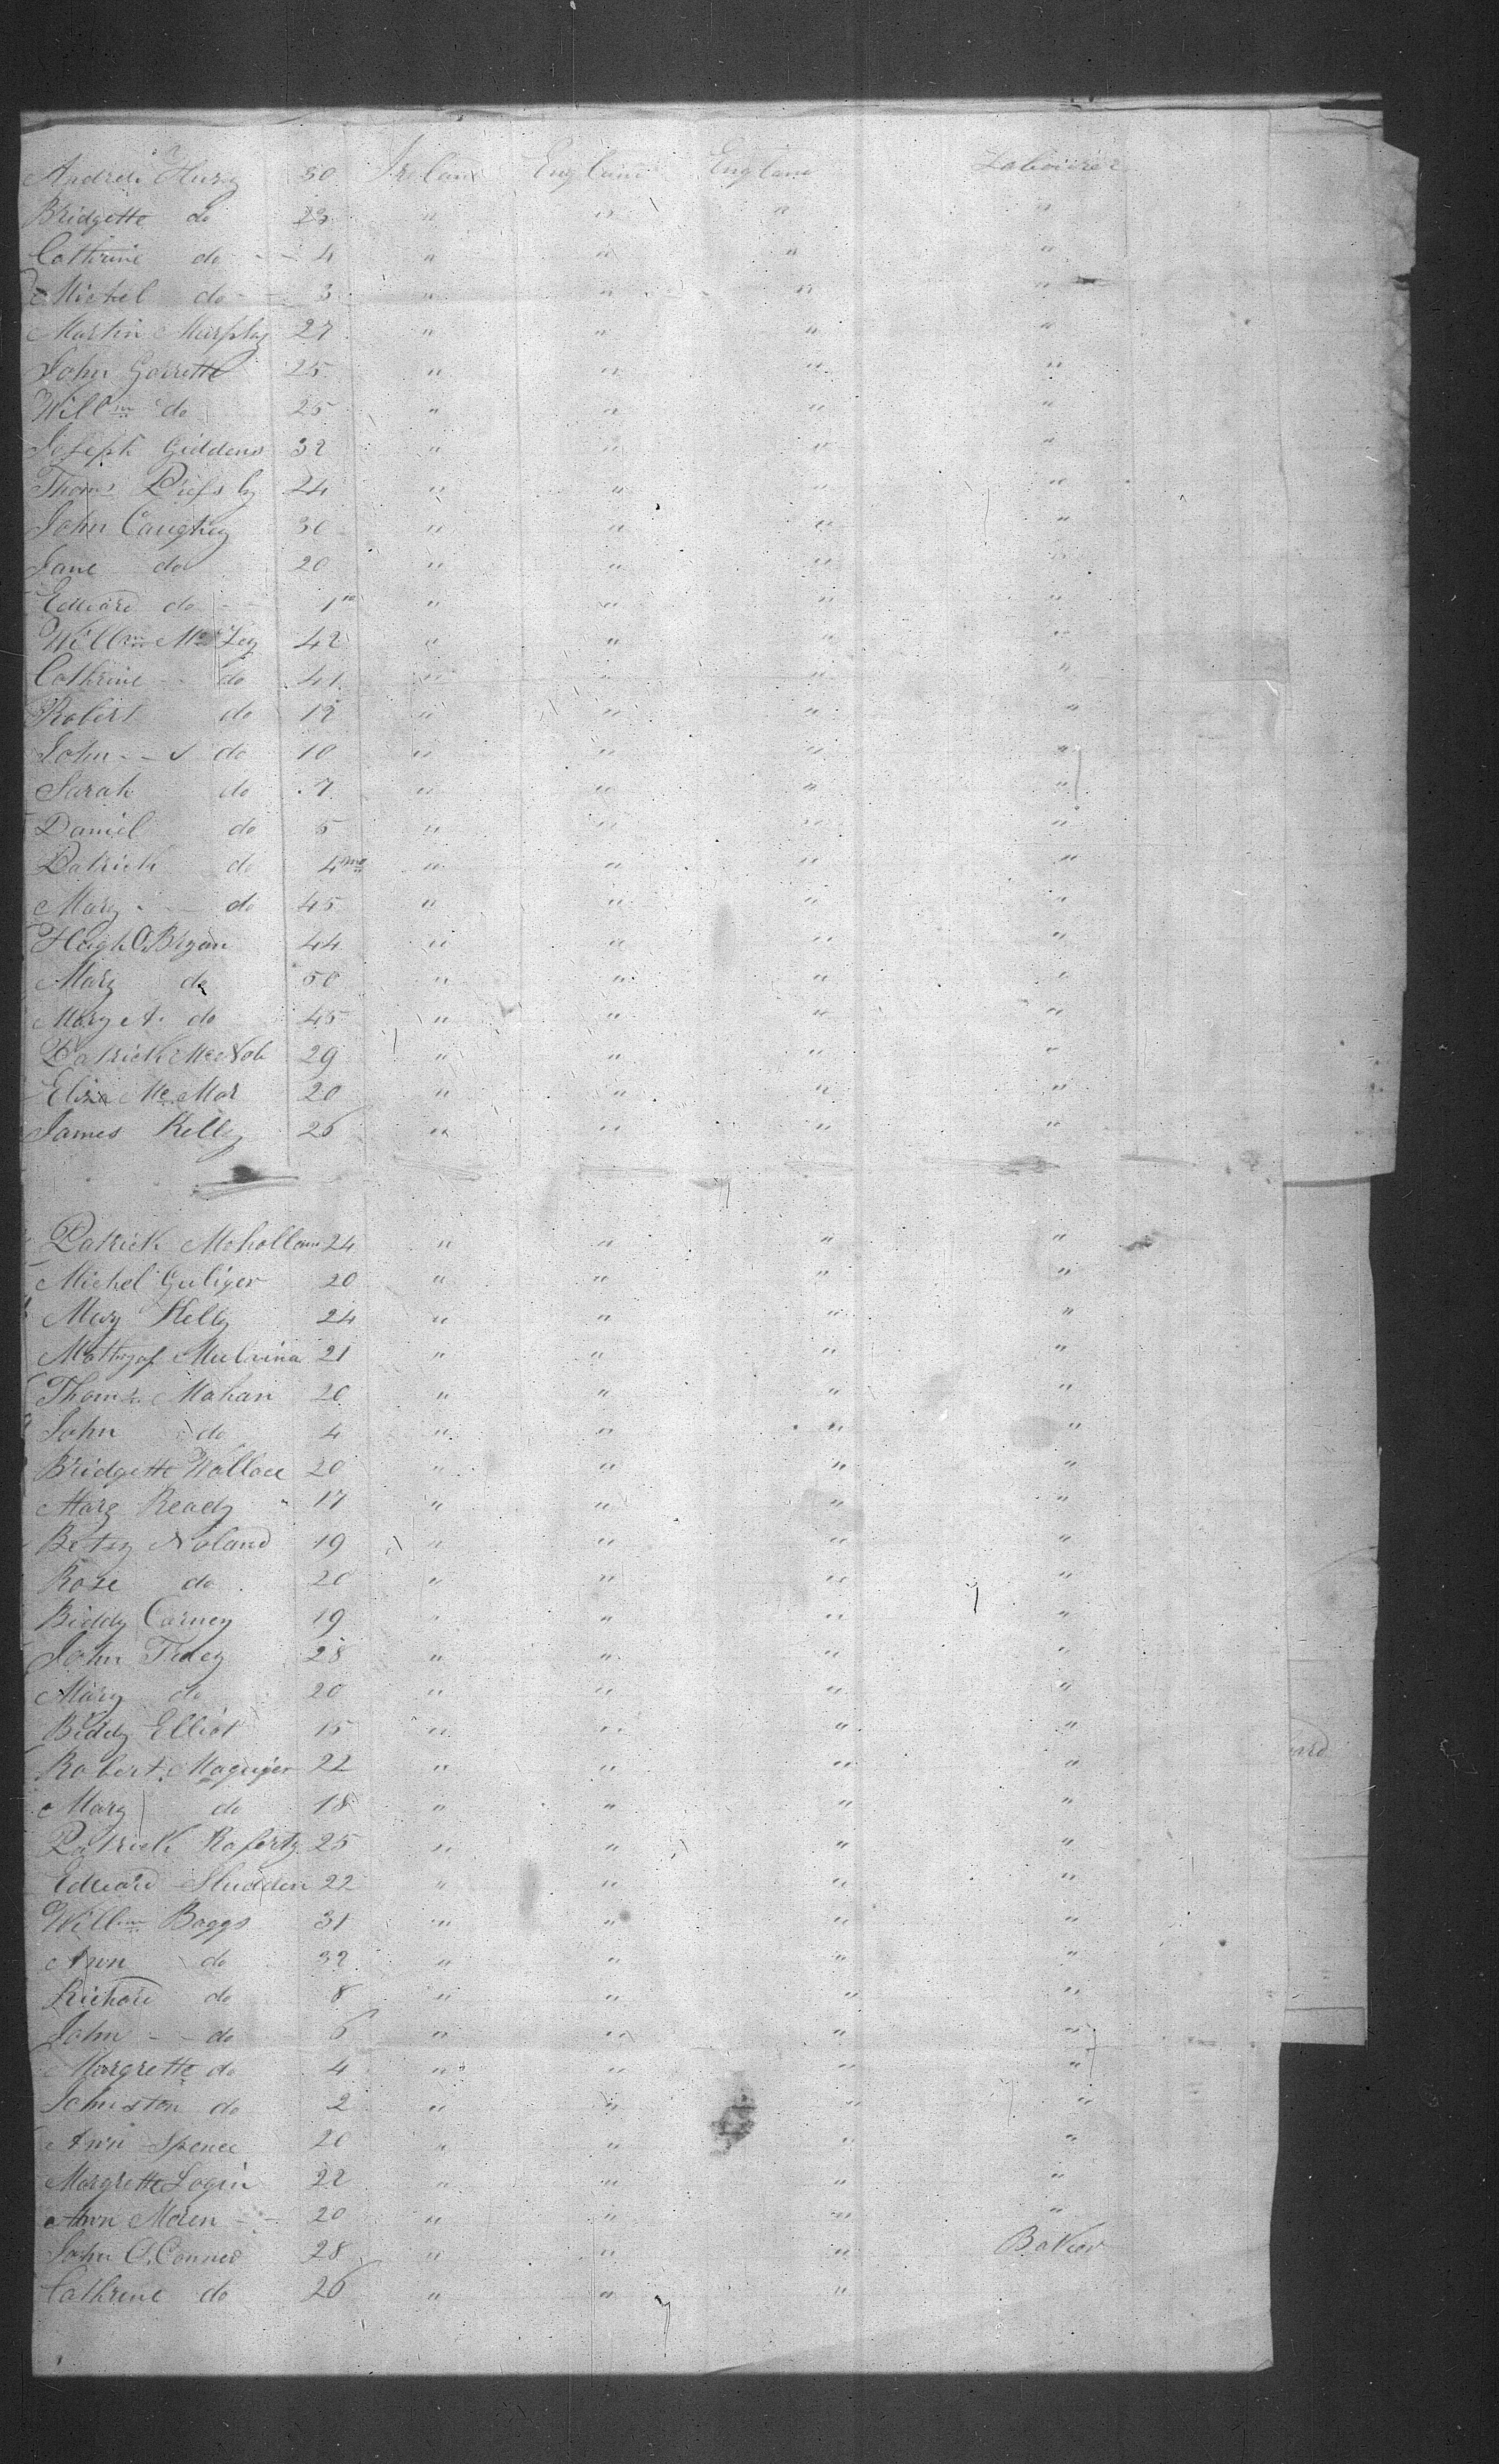 Andrew Hurg 50 Ireland England England Labourer
Bridgette do 23 " " " "
Cathrine do - - 4 " " " "
Michel do - - 3 " " " "
Martin Murphy 27 " " " "
John Garrette 25 " " " "
Willm do 25 " " " "
Joseph Giddens 32 " " " "
Thoms 24 " " " "
John Caughey 30 " " " "
Jane do 20 " " " "
Edward do - - 1m " " " "
Willm Mc Ley 42 " " " "
Cathrine - - do 41 " " " "
Robert do 12 " " " "
John - - do 10 " " " "
Sarah do 7 " " " "
Daniel do 5 " " " "
Patrick do 4mo " " " "
Mary - - do 45 " " " "
Hugh OBryan 44 " " " "
Mary do 50 " " " "
Mary A. do 45 " " " "
Patrick McNab 29 " " " "
Eliza Mc Mar 20 " " " "
James Kelly 26 " " " "
Patrick Mohollam 24 " " " "
Michel Guliger 20 " " " "
Mary Kelly 24 " " " "
Mulvina 21 " " " "
Thoms. Mahan 20 " " " "
John do 4 " " " "
Bridgette Wallace 20 " " " "
Mary Ready 17 " " " "
Betsy Noland 19 " " " "
Rose do 20 " " " "
Biddy Carney 19 " " " "
John Tracy 28 " " " "
Mary do 20 " " " "
Biddy Elliot 15 " " " "
Robert Maguiger 22 " " " "
Mary do 18 " " " "
Patrick Raferty 25 " " " "
Edward Sludden 22 " " " "
Willm Baggs 31 " " " "
Ann do 32 " " " "
Richard do 8 " " " "
John - - do 6 " " " "
Margrette do 4 " " " "
Johnston do 2 " " " "
Ann Spence 20 " " " "
Margrette Login 22 " " " "
Ann Moren - - 20 " " " "
John O.Conner 28 " " " Baker
Cathrine do 26 " " "